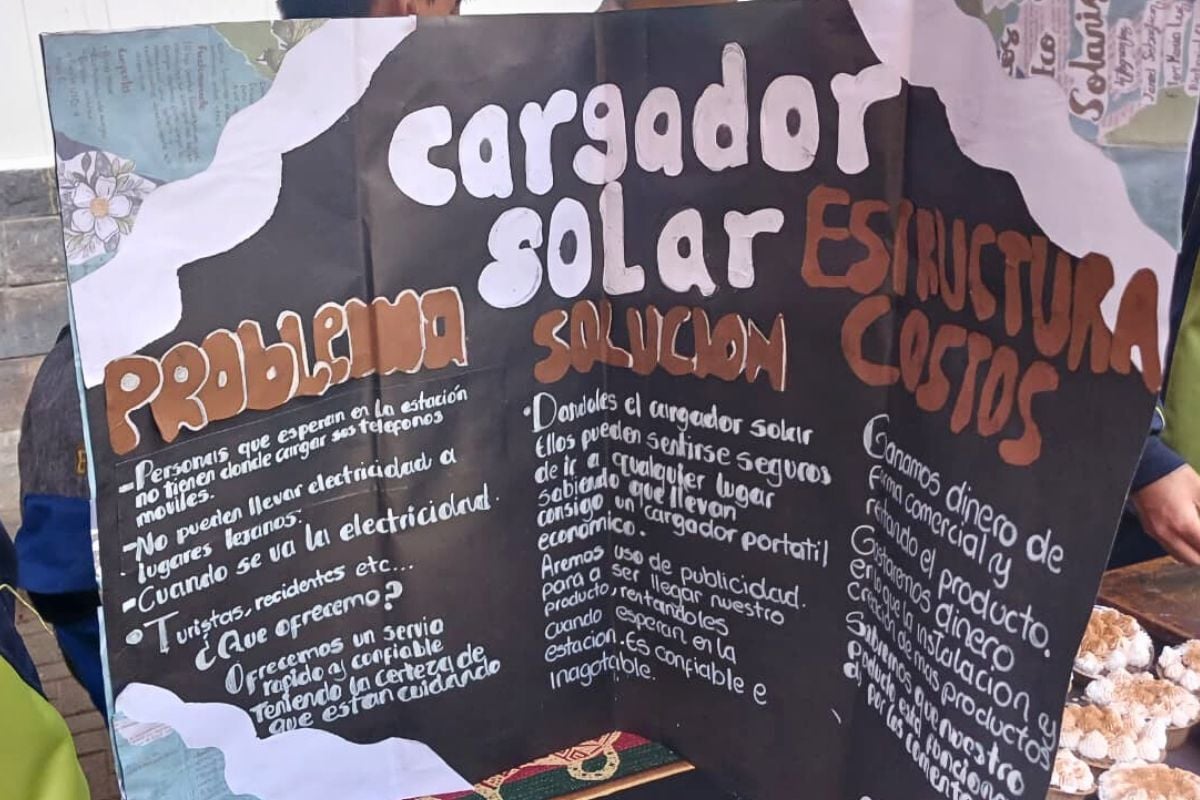 Cargador
solar
PROBlema
-Personas que esperan en la estación
no tienen donde cargar sus telefonos
moviles.
-No pueden llevar electricidad a
lugares lejanos.
-Cuando se va la electricidad.
•Turistas, recidentes etc...
¿Que ofrecemo?
Ofrecemos un servio
rapido y confiable
teniendo la certeza de
que estan cuidando
SOLUCION
•Dandoles el cargador solar
Ellos pueden sentirse seguros
de ir a cualquier lugar
sabiendo que llevan
consigo un cargador portatil
económico.
Aremos uso de publicidad.
para a ser llegar nuestro
producto, rentandoles
cuando esperan en la
estacion. Es confiable e
Inagotable.
ESTRUCTURA
COSTOS
Ganamos dinero de
firma comercial y
rentando el producto.
Gastaremos dinero
en lo que la instalacion y
creación de mas productos
Sabremos que nuestro
Producto está funciona
y por los comenta